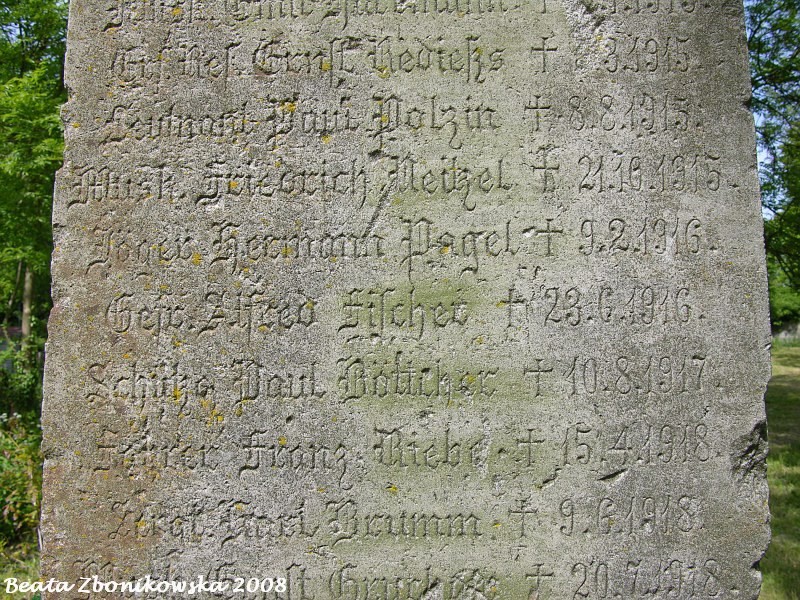 Musk. Emil Hartmann †
Ers. Res. Ernst Rediess † 3.1915.
Leutnant Paul Polzin † 8.8.1915.
Musk. Friedrich Neitzel † 21.10.1915.
Jäger Hermann Pagel † 9.2.1916.
Gefr. Alfred Fischer † 23.6.1916.
Schütze Paul Böttcher † 10.8.1917.
Fahrer Franz Riebe † 15.4.1918.
Karl Brumm † 9.6.1918.
Ernst † 20.7.1918.
Beata Zbonikowska 2008